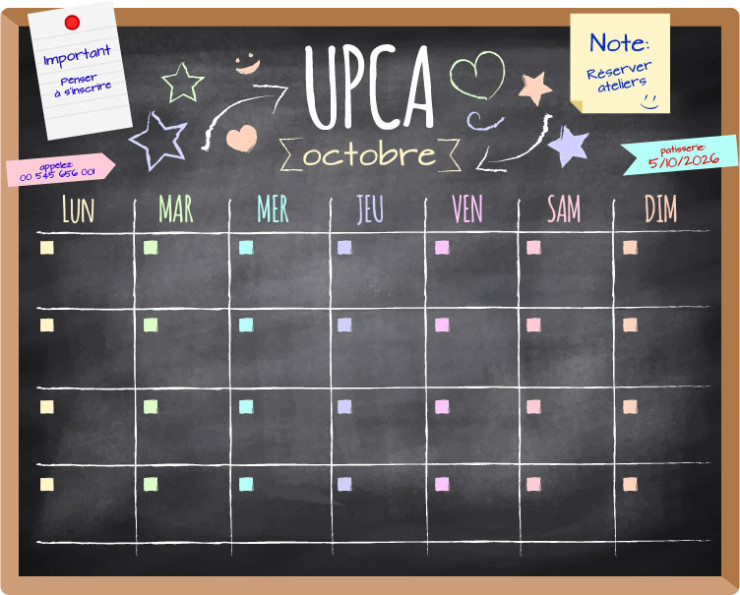 Important
Penser
à s'inscrire
UPCA
octobre
Note:
Réserver
ateliers
appelez:
00 545 656 001
patisserie:
5/10/2026
LUN MAR MER JEU VEN SAM DIM